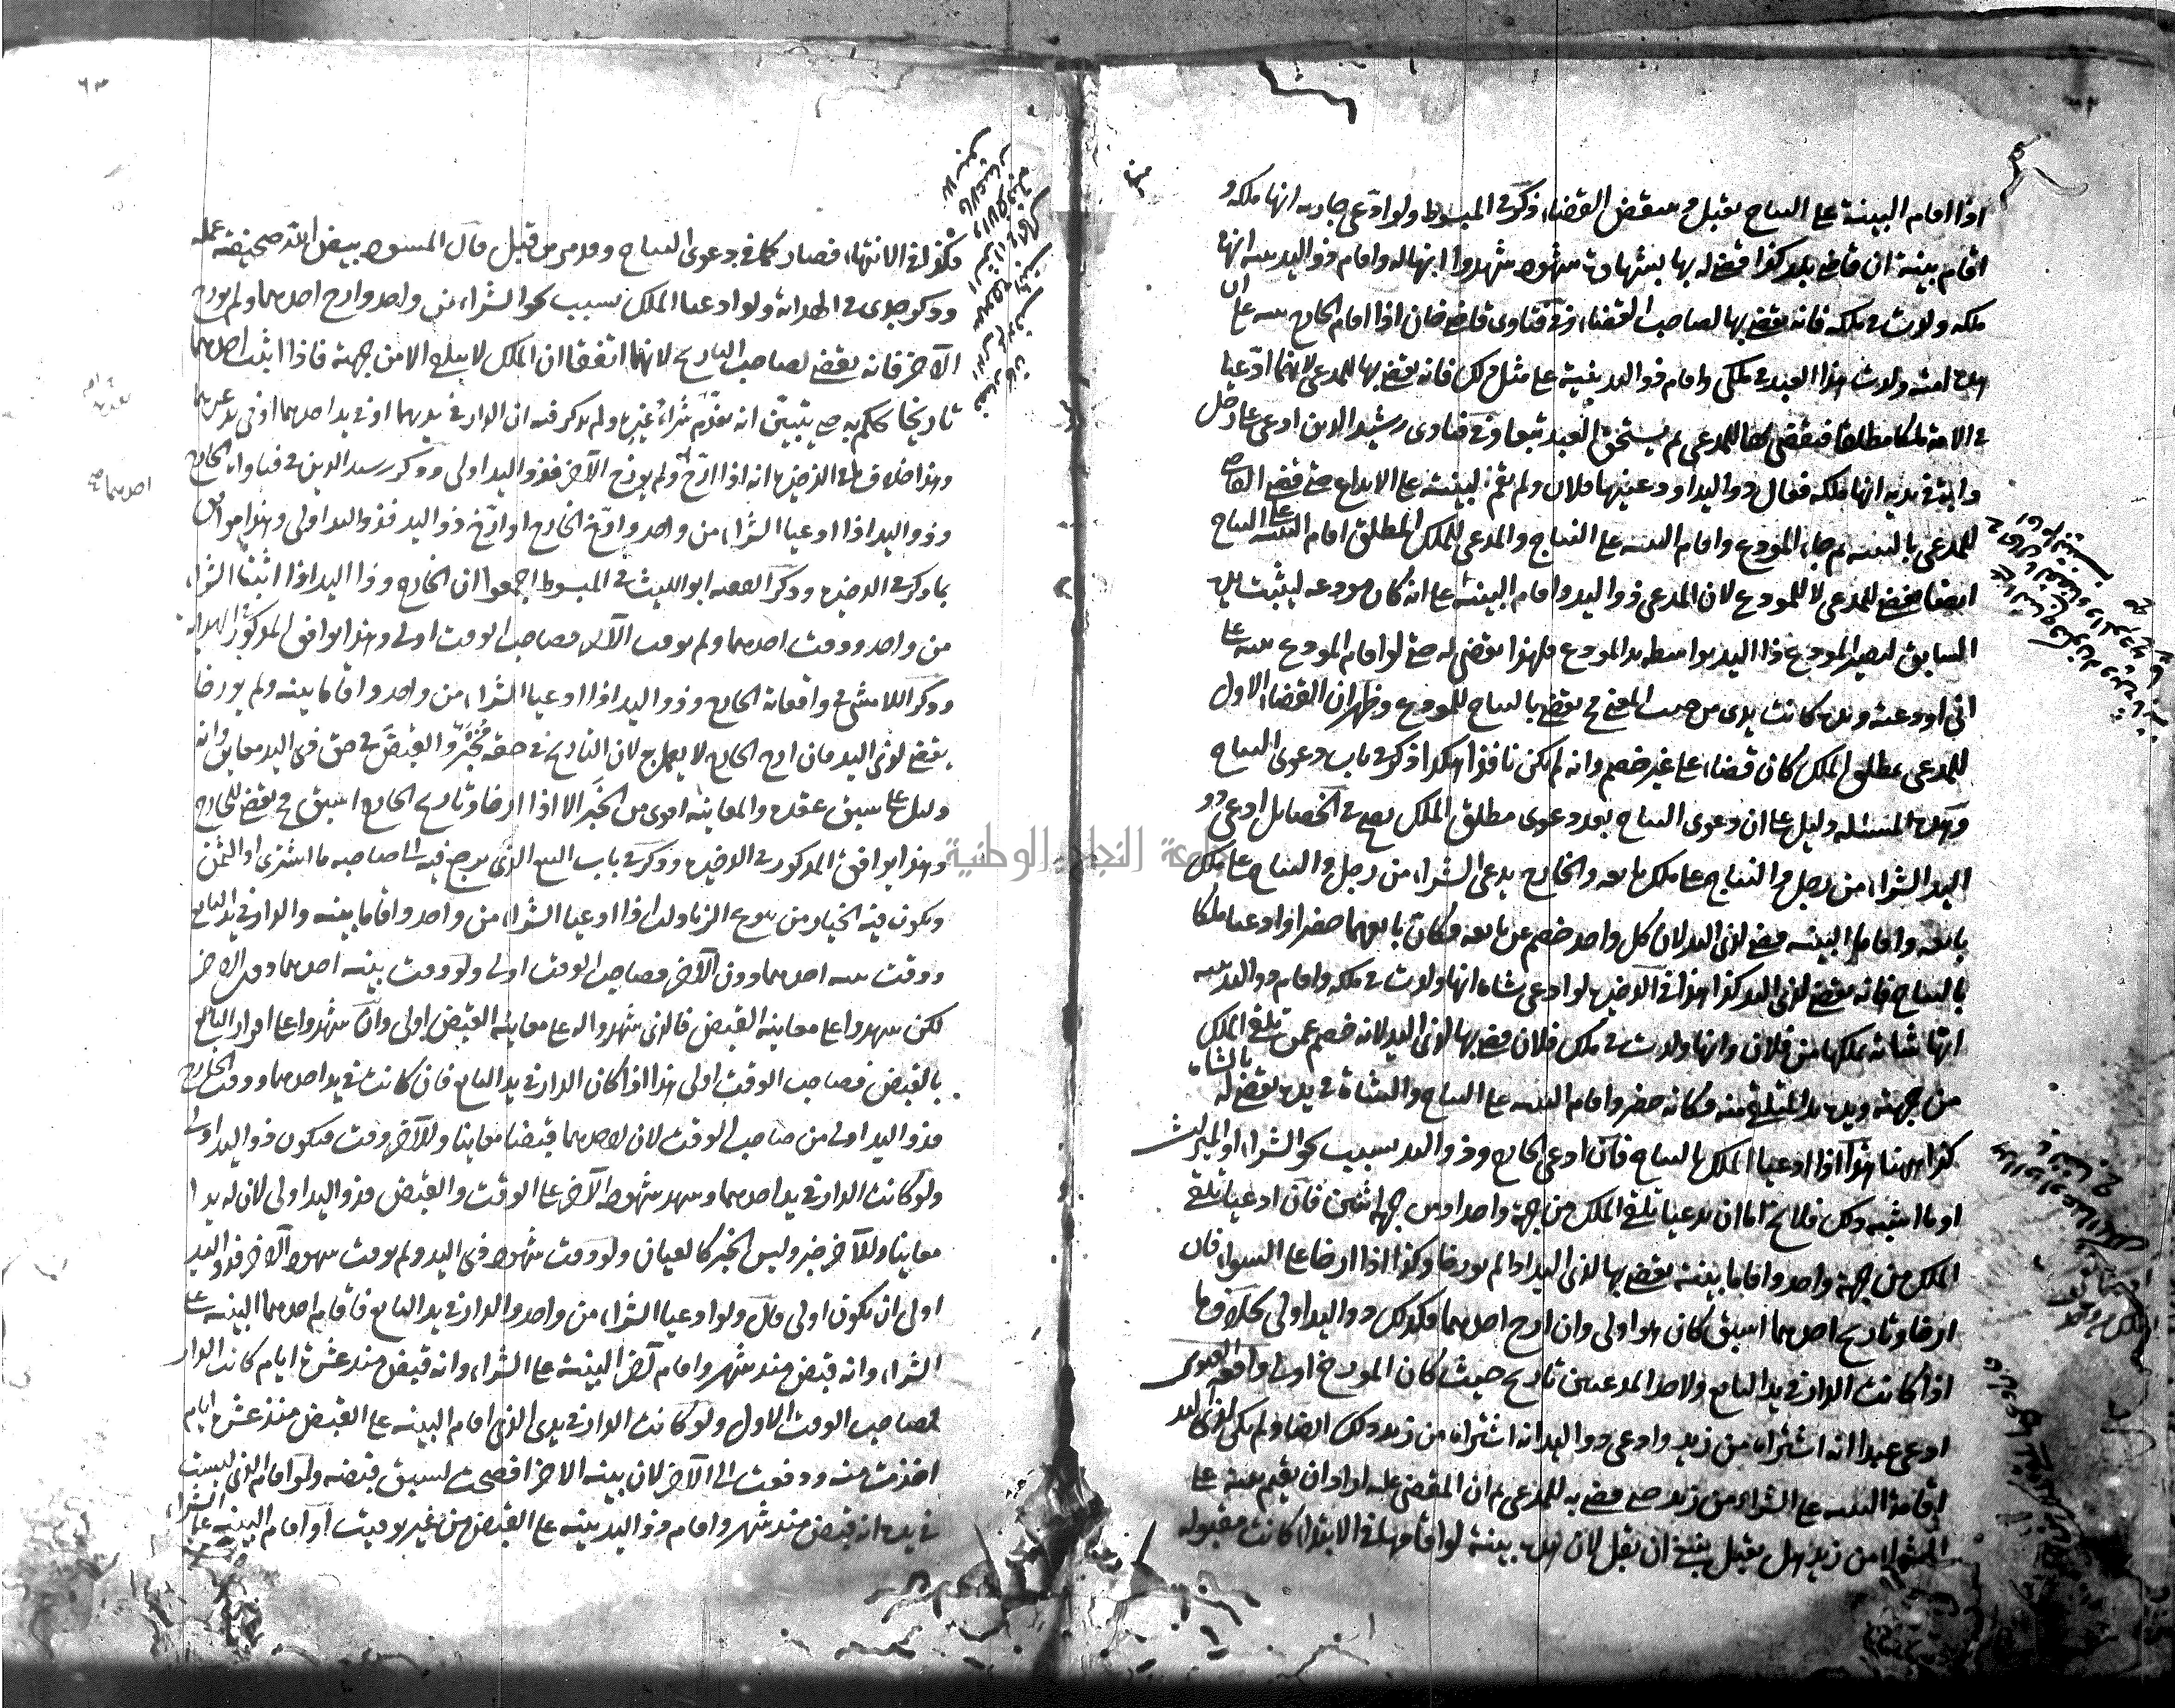 اذا اقام البينة على النتاج تقبل وينقض القضاء ذكره في المبسوط ولو ادعى جارية انها ملكه و
اقام بينة ان قاضي بلد كذا قضى له بها بشهادة شهود شهدوا انها له واقام ذو اليد بينة انها
ملكه ولدت في ملكه فانه يقضى بها لصاحب القضاء وفي فتاوى قاضي خان اذا اقام الخارج بينة على ان
هذه امته ولدت هذا العبد في ملكي واقام ذو اليد بينة على مثل ذلك فانه يقضى بها للمدعي لانهما ادعيا
في الامة ملكا مطلقا فيقضى بها للمدعي ثم يستحق العبد تبعا وفي فتاوى رشيد الدين ادعى على رجل
دابة في يديه انها ملكه فقال ذو اليد اودعنيها فلان ولم يقم البينة على الايداع حتى قضى القاضي
للمدعي بالبينة ثم جاء المودع واقام البينة على النتاج والمدعي للملك المطلق اقام البينة على النتاج
ايضا يقضى للمدعي لا للمودع لان المدعي ذو اليد واقام البينة على انه كان مودعه ليثبت يده
السابق ليصير المودع ذا اليد بواسطة يد المودع فلهذا يقضى له حتى لو اقام المودع بينة على
اني اودعته ويده كانت يدي من حيث المعنى ح يقضى بالنتاج للمودع وظهر ان القضاء الاول
للمدعي بمطلق الملك كان قضاء على غير خصم وانه لم يكن نافذا هكذا ذكر في باب دعوى النتاج
وهذه المسئلة دليل على ان دعوى النتاج بعد دعوى مطلق الملك يصح في الخصايل ادعى ذو
اليد الشراء من رجل والنتاج على ملك بايعه والخارج يدعي الشراء من رجل والنتاج على ملك
بايعه واقاما البينة قضى لذي اليد لان كل واحد خصم عن بايعه فكان بايعهما حضرا وادعيا ملكا
بالنتاج فانه يقضى لذي اليد كذا هذا في الذخيرة لو ادعى شاة انها ولدت في ملكه واقام ذو اليد بينة
انها شاته تملكها من فلان وانها ولدت في ملك فلان قضى بها لذي اليد لانه خصم عمن تلقى الملك
من جهته ويده يد المتلقى منه فكانه حضر واقام البينة على النتاج والشاة في يده يقضى له بالشاة
كذا ههنا هذا اذا ادعيا الملك بالنتاج فان ادعى الخارج وذو اليد بسبب نحو الشراء او الميراث
او ما اشبه ذلك فلا يخ اما ان يدعيا تلقي الملك من جهة واحد او من جهة اثنين فان ادعيا تلقي
الملك من جهة واحد واقاما بينة يقضى بها لذي اليد اذا لم يورخا وكذا اذا ارخا على السواء فان
ارخا وتاريخ احدهما اسبق كان هو اولى وان ارخ احدهما فكذلك ذو اليد اولى بخلاف ما
اذا كانت الدار في يد البايع ولاحد المدعيين تاريخ حيث كان المورخ اولى واقعة الفتوى
ادعى عبدا انه اشتراه من زيد وادعى ذو اليد انه اشتراه من زيد ذلك ايضا ولم يكن لذي اليد
اقامة البينة على الشراء من زيد حتى قضى به للمدعي ثم ان المقضي عليه اراد ان يقيم بينة على
الشراء من زيد هل تقبل ينبغي ان تقبل لان هذه بينة لو اقامها في الابتداء كانت مقبولة
٦٣
فكذا في الانتهاء فصار كما في دعوى النتاج وقد مر من قبل قال المسود بيض الله صحيفة عمله
وذكر جدي في الهداية ولو ادعيا الملك بسبب نحو الشراء من واحد وارخ احدهما ولم يورخ
الآخر فانه يقضى لصاحب التاريخ لانهما اتفقا ان الملك لا يتلقى الا من جهته فاذا اثبت احدهما
تاريخا يحكم به حتى يتبين انه تقدمه شراء غيره ولم يذكر فيه ان الدار في يديهما او في يد احدهما او في يد غيرهما
وهذا خلاف ما في الذخيرة انه اذا ارخ ولم يورخ الآخر فذو اليد اولى وذكر رشيد الدين في فتاواه الخارج
وذو اليد اذا ادعيا الشراء من واحد وارخ الخارج او ارخ ذو اليد فذو اليد اولى وهذا موافق
بما ذكر في الذخيرة وذكر الفقيه ابو الليث في المبسوط اجمعوا ان الخارج وذا اليد اذا اثبتا الشراء
من واحد ووقت احدهما ولم يوقت الآخر فصاحب الوقت اولى وهذا يوافق المذكور في الهداية
وذكر اللامشي في واقعاته الخارج وذو اليد اذا ادعيا الشراء من واحد واقاما بينة ولم يورخا
يقضى لذي اليد فان ارخ الخارج لا يعمل به لان التاريخ في حقه مخبر والقبض في حق ذي اليد معاين وانه
دليل على سبق عقده والمعاينة اقوى من الخبر الا اذا ارخا وتاريخ الخارج اسبق ح يقضى للخارج
وهذا يوافق المذكور في الذخيرة وذكر في باب البيع الذي يرجع فيه الى صاحبه ما اشترى او الثمن
ويكون فيه الخيار من بيوع الزيادات اذا ادعيا الشراء من واحد واقاما بينة والدار في يد البايع
ووقت بينة احدهما دون الآخر فصاحب الوقت اولى ولو وقت بينة احدهما دون الاخر
لكن شهدوا على معاينة القبض فالذي شهدوا له على معاينة القبض اولى وان شهدوا على اقرار البايع
بالقبض فصاحب الوقت اولى هذا اذا كان الدار في يد البايع فان كانت في يد احدهما ووقت الخارج
فذو اليد اولى من صاحب الوقت لان لاحدهما قبضا معاينا وللآخر وقت فيكون ذو اليد اولى
ولو كانت الدار في يد احدهما وشهد شهود الآخر على الوقت والقبض فذو اليد اولى لان له يدا
معاينا وللآخر خبر وليس الخبر كالعيان ولو وقت شهود ذي اليد ولم يوقت شهود الآخر فذو اليد
اولى ان يكون اولى قال ولو ادعيا الشراء من واحد والدار في يد البايع فاقام احدهما البينة على
الشراء وانه قبض منذ شهر واقام آخر البينة على الشراء وانه قبض منذ عشرة ايام كانت الدار
لصاحب الوقت الاول ولو كانت الدار في يدي الذي اقام البينة على القبض منذ عشرة ايام
اخذت منه ودفعت الى الآخر لان بينة الاخر افصحت لسبق قبضه ولو اقام الذي ليست
في يده انه قبض منذ شهر واقام ذو اليد بينة على القبض من غير توقيت او اقام البينة على الشراء
احدهما
جامعة النجاح الوطنية